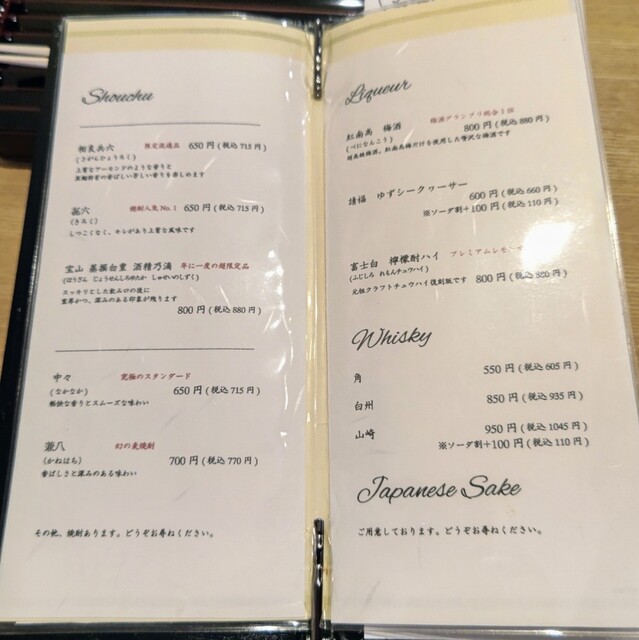 Shouchu
相良兵六 限定流通品 650 円 (税込 715 円)
(さがらひょうろく)
上質なアーモンドのような香りと
㐂六 焼酎人気 No.1 650 円 (税込 715 円)
(きろく)
しつこくなく、キレがあり上質な風味です
宝山 蒸撰白豊 酒精乃滴 年に一度の超限定品
(ほうざん じょうせんしろゆたか しゅせいのしずく)
スッキリとした飲み口の後に
重厚かつ、深みのある印象が残ります
800 円 (税込 880 円)
中々 究極のスタンダード
(なかなか) 650 円 (税込 715 円)
軽快な香りとスムーズな味わい
兼八 幻の麦焼酎
(かねはち) 700 円 (税込 770 円)
香ばしさと深みのある味わい
その他、焼酎あります。どうぞお尋ねください。
Liqueur
紅南高 梅酒 梅酒グランプリ総合1位
(べになんこう) 800 円 (税込 880 円)
紅南高梅だけを使用した贅沢な梅酒です
請福 ゆずシークヮーサー
600 円 (税込 660 円)
※ソーダ割+100 円 (税込 110 円)
富士白 檸檬酎ハイ プレミアムレモン
(ふじしろ れもんチュウハイ)
元祖クラフトチュウハイ復刻版です 800 円 (税込 880 円)
Whisky
角 550 円 (税込 605 円)
白州 850 円 (税込 935 円)
山崎 950 円 (税込 1045 円)
※ソーダ割+100 円 (税込 110 円)
Japanese Sake
ご用意しております。どうぞお尋ねください。